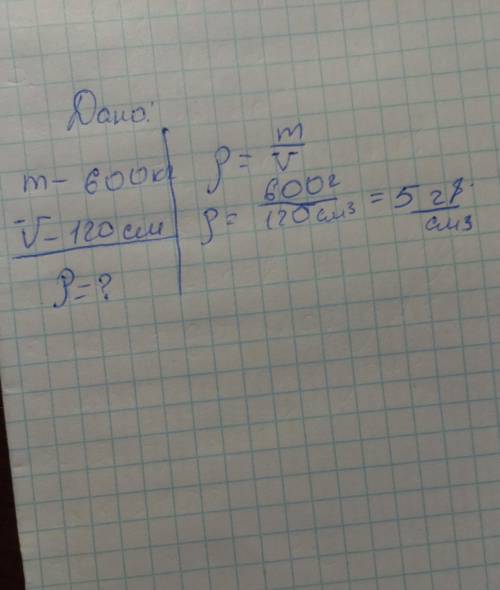 Дано:
m - 600кг
V - 120 см
ρ = ?
ρ = m/V
ρ = 600г/120 см3 = 5 г/см3